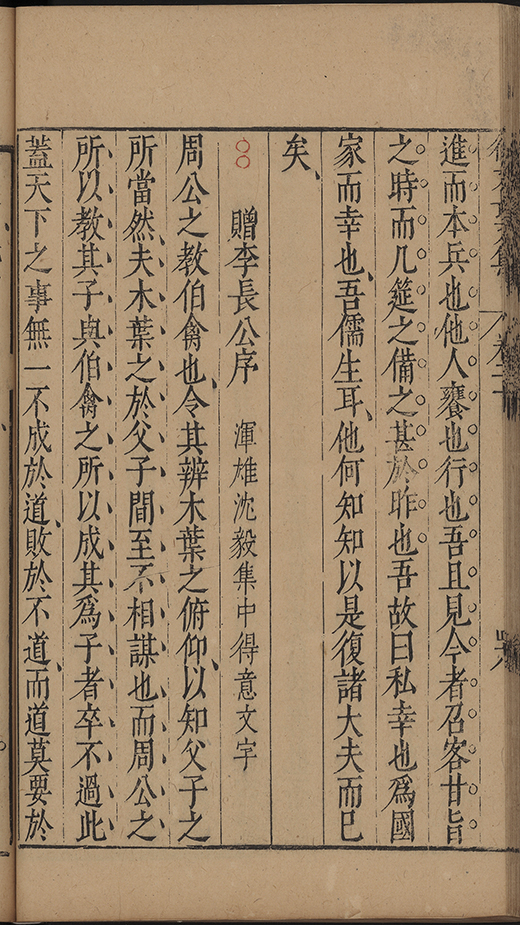 進而本兵也他人饔也行也吾且見今者召客甘旨
之時而几筵之備之甚於昨也吾故曰私幸也爲國
家而幸也吾儒生耳他何知知以是復諸大夫而已
矣
贈李長公序 渾雄沈毅集中得意文字
周公之教伯禽也令其辨木葉之俯仰以知父子之
所當然夫木葉之於父子間至不相謀也而周公之
所以教其子與伯禽之所以成其爲子者卒不過此
蓋天下之事無一不成於道敗於不道而道莫要於